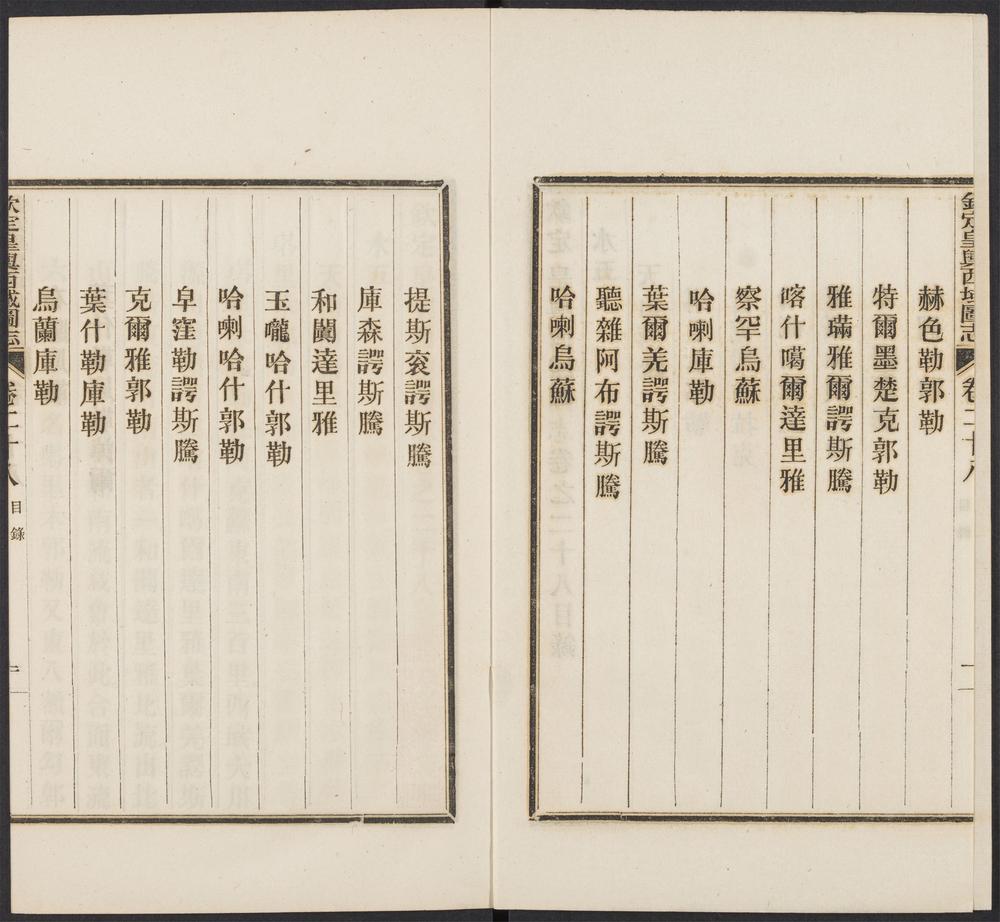 欽定皇輿西域圖志 卷二十八 一
赫色勒郭勒
特爾墨楚克郭勒
雅璊雅爾諤斯騰
喀什噶爾達里雅
察罕烏蘇
哈喇庫勒
葉爾羌諤斯騰
聽雜阿布諤斯騰
哈喇烏蘇
提斯衮諤斯騰
庫森諤斯騰
和闐達里雅
玉嚨哈什郭勒
哈喇哈什郭勒
皁窪勒諤斯騰
克爾雅郭勒
葉什勒庫勒
烏蘭庫勒
欽定皇輿西域圖志 卷二十八 目錄 二